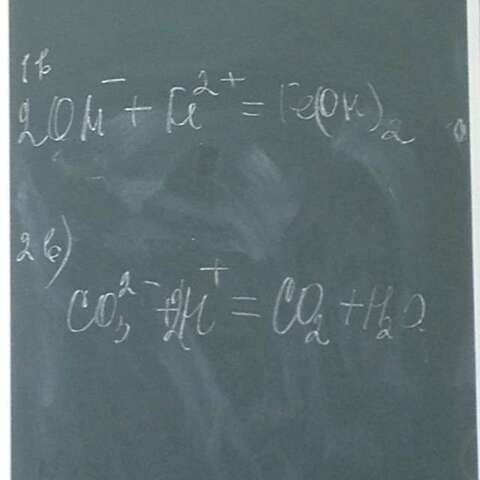 1 в
2OH⁻ + Fe²⁺ = Fe(OH)₂
2 в)
CO₃²⁻ + 2H⁺ = CO₂ + H₂O